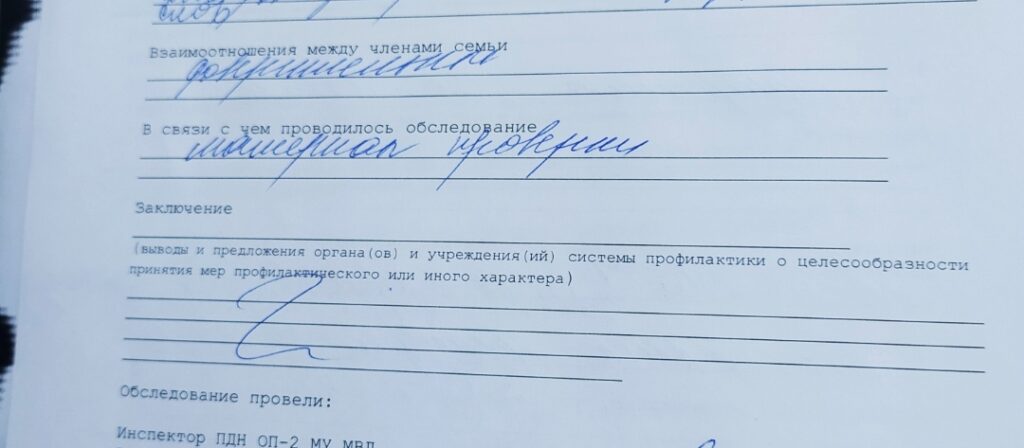 слов
Взаимоотношения между членами семьи
доброжелательные
В связи с чем проводилось обследование
материал проверки
Заключение
(выводы и предложения органа(ов) и учреждения(ий) системы профилактики о целесообразности
принятия мер профилактического или иного характера)
Обследование провели:
Инспектор ПДН ОП-2 МУ МВД